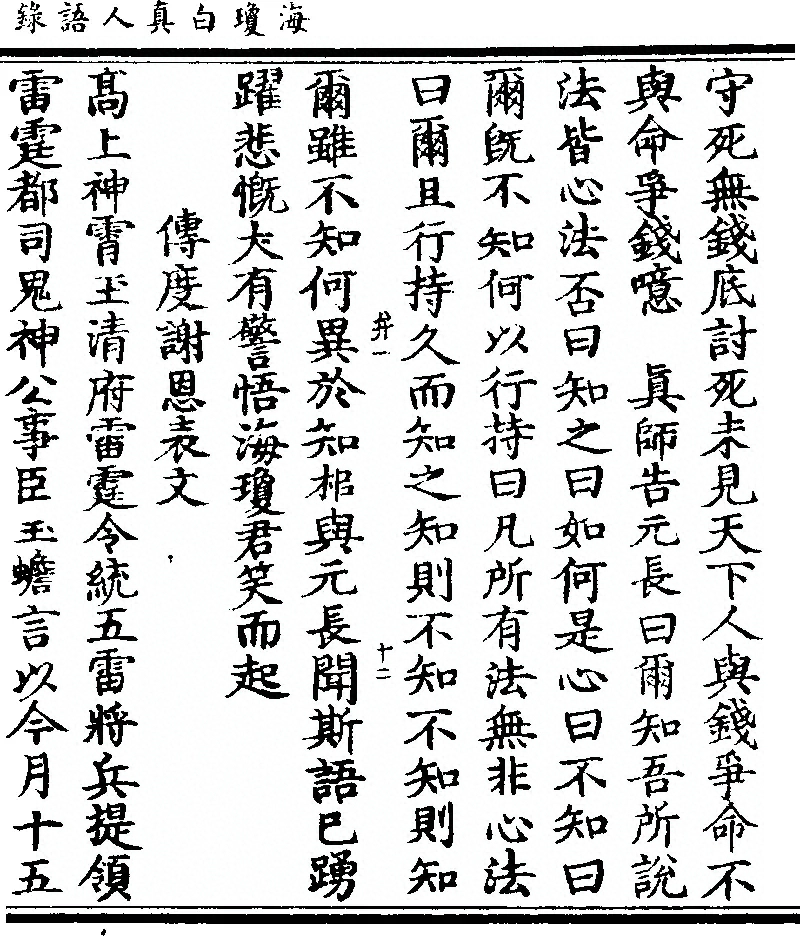 海瓊白真人語錄
守死無錢底討死未見天下人與錢爭命不
與命爭錢噫　眞師告元長曰爾知吾所說
法皆心法否曰知之曰如何是心曰不知曰
爾旣不知何以行持曰凡所有法無非心法
曰爾且行持久而知之知則不知不知則知
弁一
十二
爾雖不知何異於知柤與元長聞斯語已踴
躍悲慨大有警悟海瓊君笑而起
傳度謝恩表文
髙上神霄玉清府雷霆令統五雷將兵提領
雷霆都司鬼神公事臣玉蟾言以今月十五